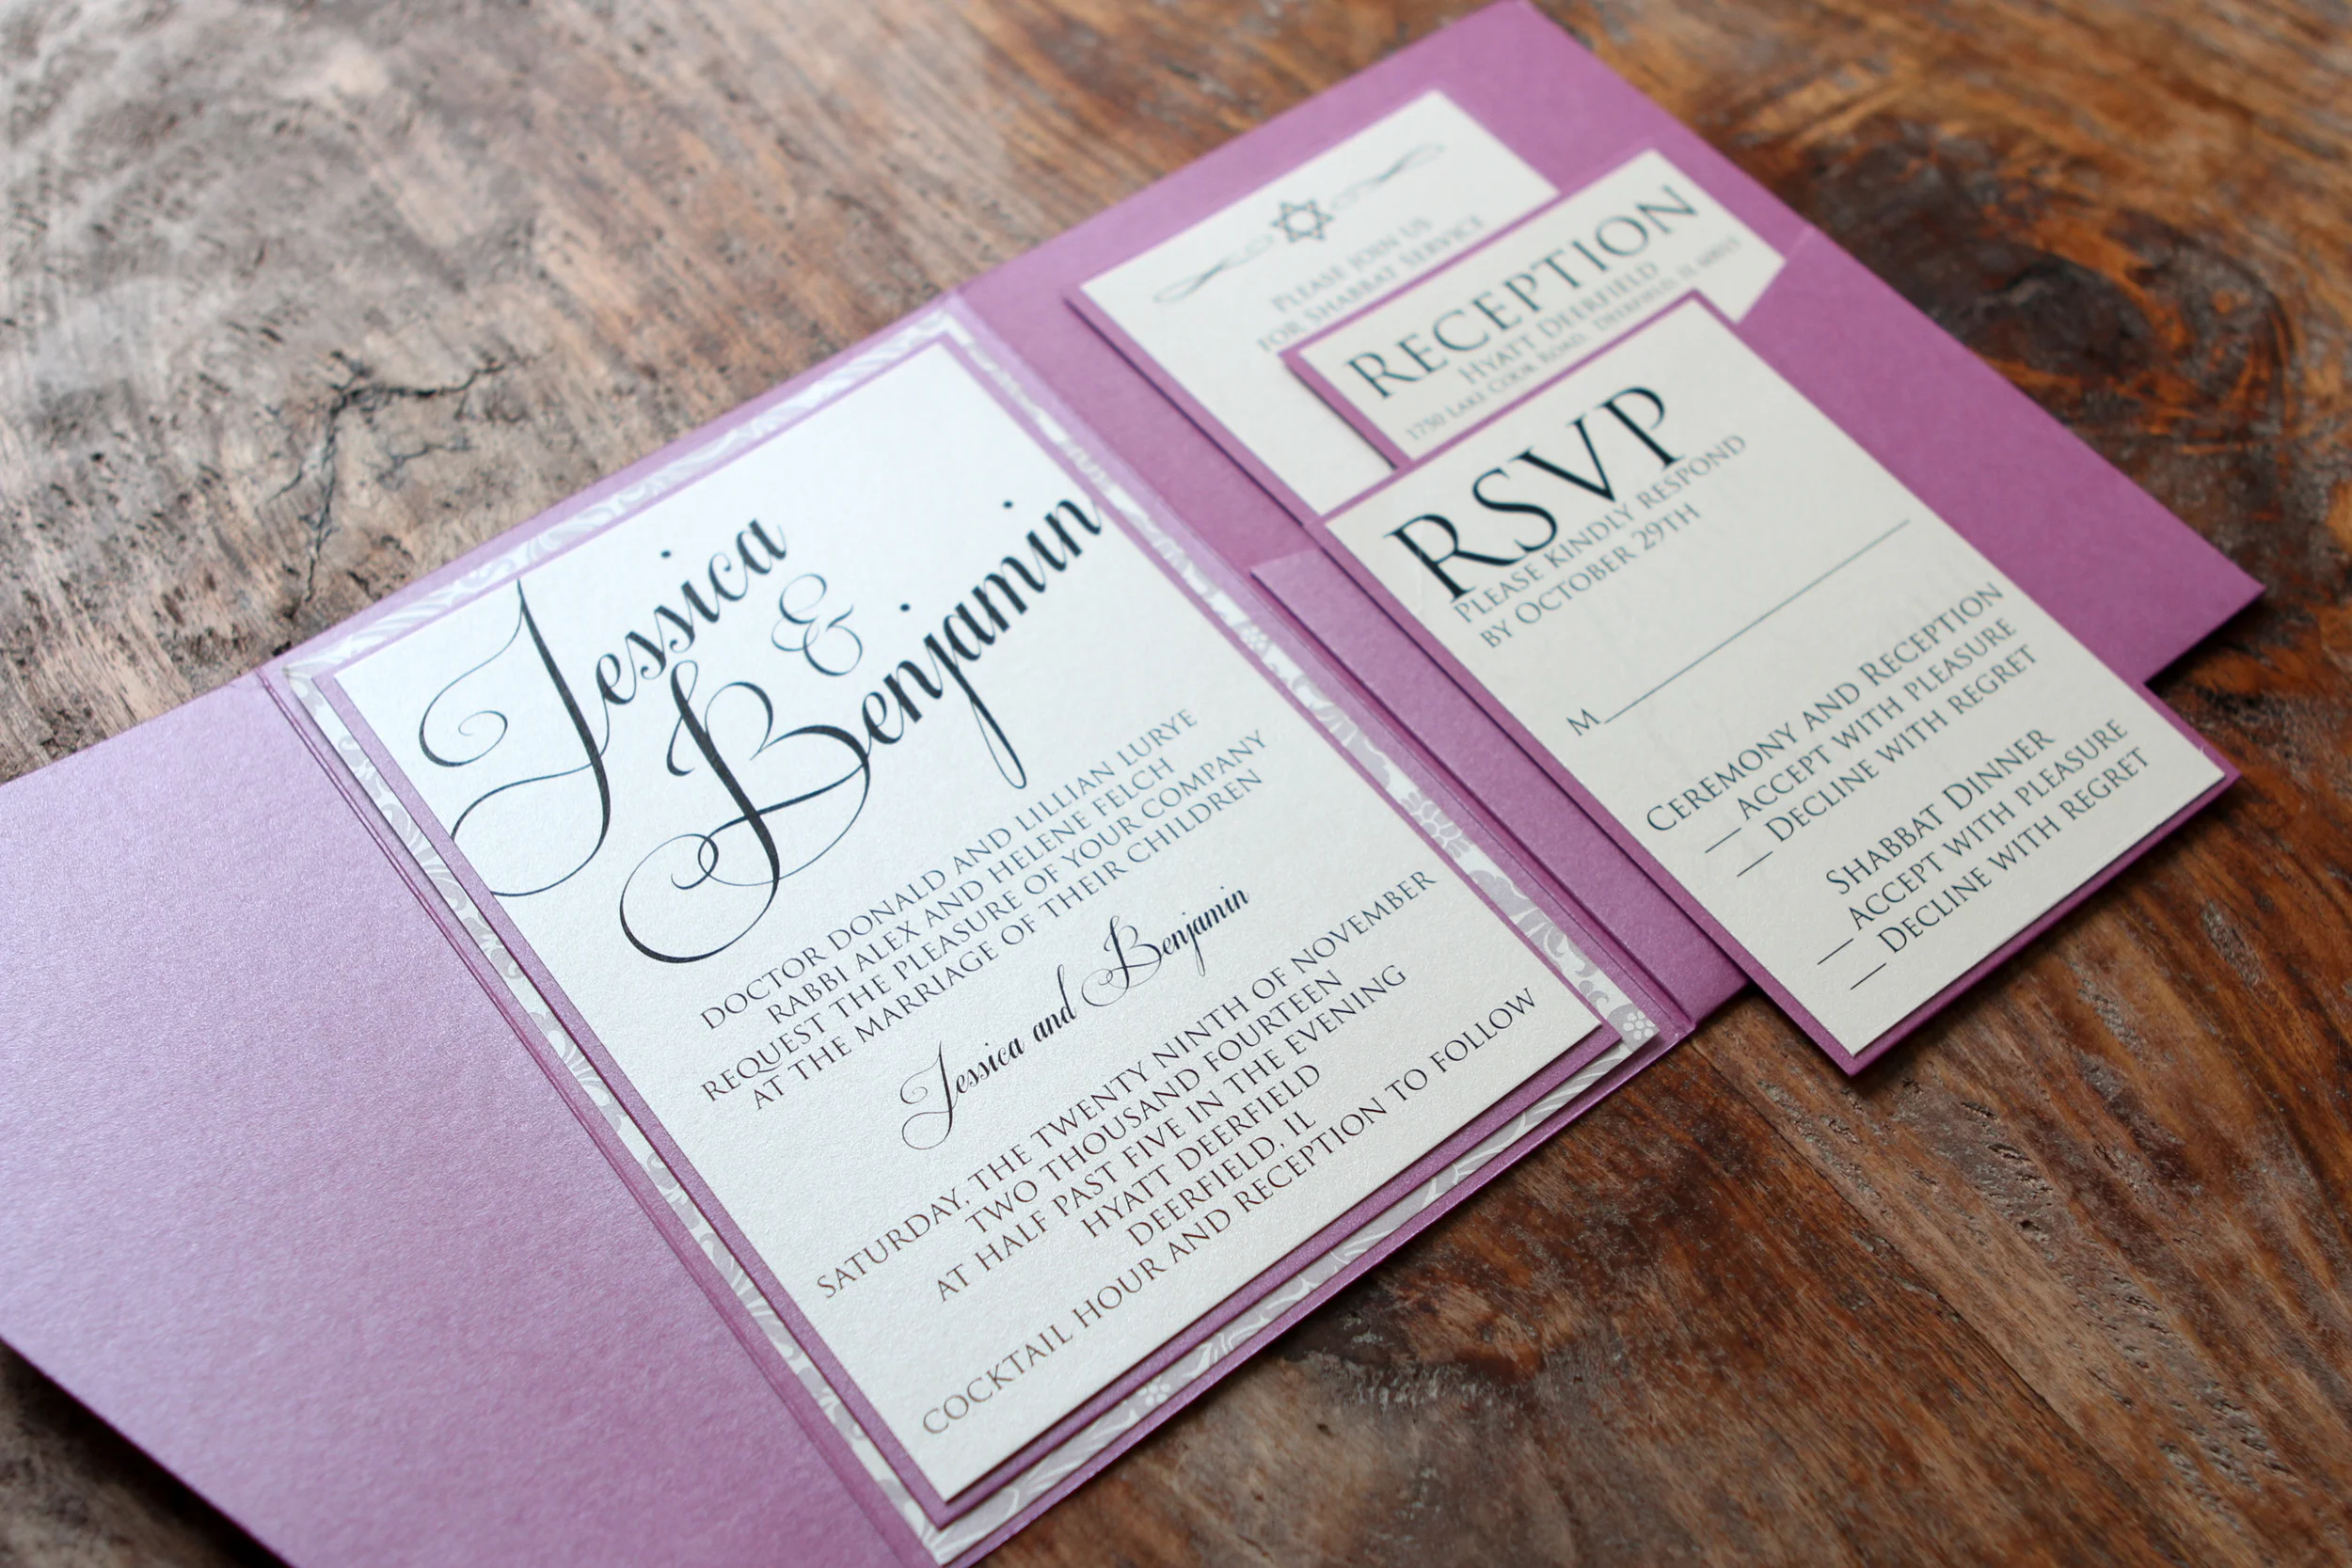 Jessica
&
Benjamin
DOCTOR DONALD AND LILLIAN LURYE
RABBI ALEX AND HELENE FELCH
REQUEST THE PLEASURE OF YOUR COMPANY
AT THE MARRIAGE OF THEIR CHILDREN
Jessica and Benjamin
SATURDAY, THE TWENTY NINTH OF NOVEMBER
TWO THOUSAND FOURTEEN
AT HALF PAST FIVE IN THE EVENING
HYATT DEERFIELD
DEERFIELD, IL
COCKTAIL HOUR AND RECEPTION TO FOLLOW
PLEASE JOIN US
FOR SHABBAT SERVICE
RECEPTION
HYATT DEERFIELD
1750 LAKE COOK ROAD, DEERFIELD, IL 60015
RSVP
PLEASE KINDLY RESPOND
BY OCTOBER 29TH
M
CEREMONY AND RECEPTION
ACCEPT WITH PLEASURE
DECLINE WITH REGRET
SHABBAT DINNER
ACCEPT WITH PLEASURE
DECLINE WITH REGRET